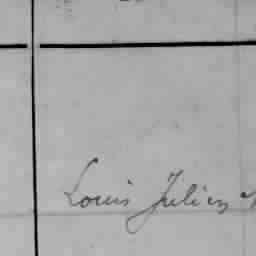 Louis Julien